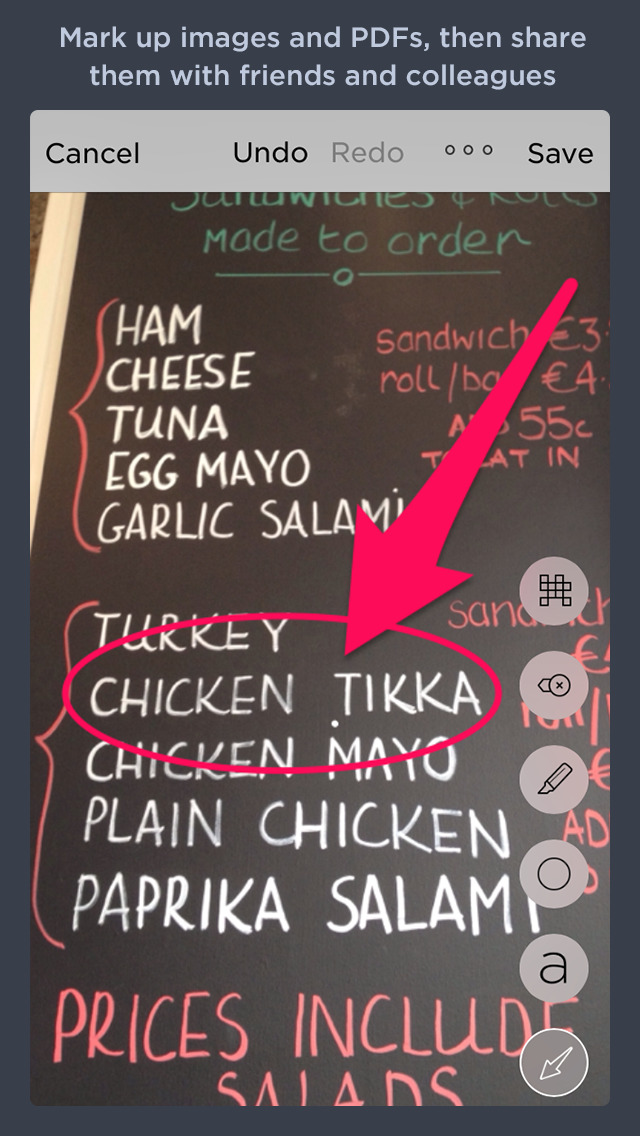 Mark up images and PDFs, then share
them with friends and colleagues
Cancel Undo Redo Save
Sandwiches & Rolls
Made to order
HAM
CHEESE
TUNA
EGG MAYO
GARLIC SALAMI
sandwich €3
roll/ba €4
55c
EAT IN
TURKEY
CHICKEN TIKKA
CHICKEN MAYO
PLAIN CHICKEN
PAPRIKA SALAMI
a
PRICES INCLUDE
SALADS